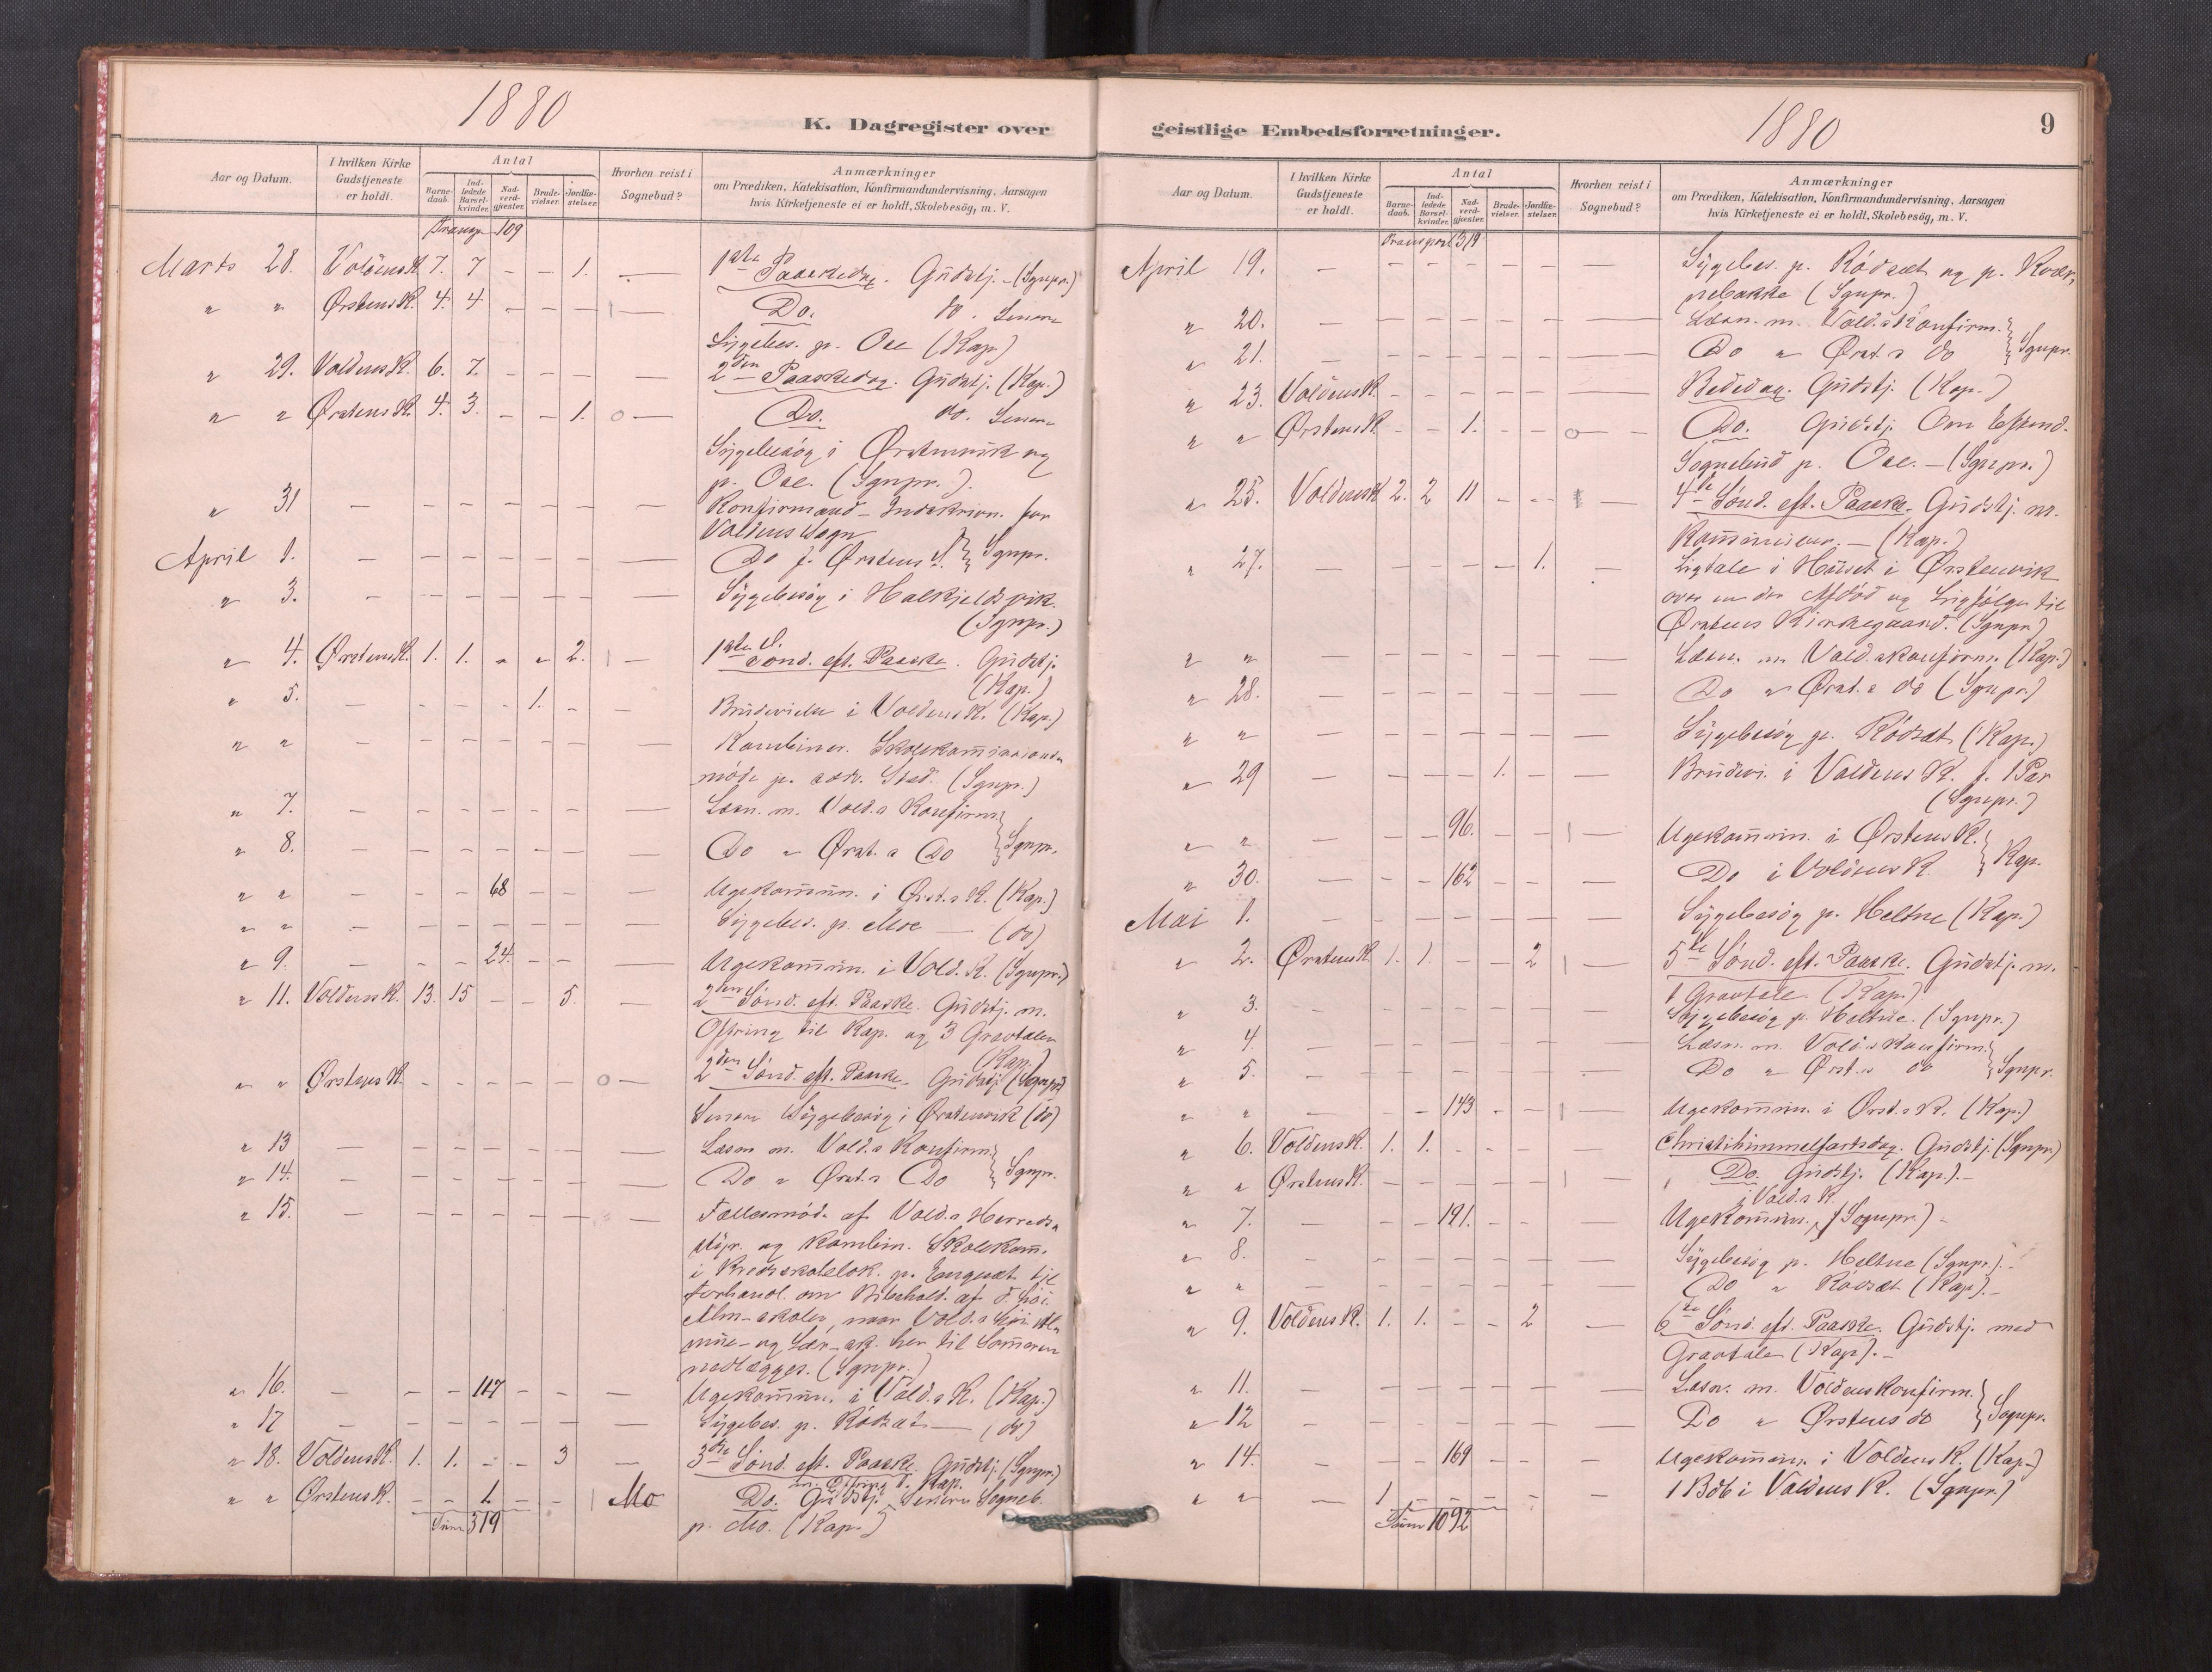 1880
K. Dagregister over
Aar og Datum.
I hvilken Kirke Gudstjeneste er holdt.
Antal
Barnedaab. Indledede Barselkvinder. Nadverdgjæster. Brudevielser. Jordfæstelser.
Hvorhen reist i Sognebud?
Anmærkninger
om Prædiken, Katekisation, Konfirmandundervisning, Aarsagen
hvis Kirketjeneste ei er holdt, Skolebesög, m. V.
Transp. 109
Marts 28. Voldens K. 7. 7 - - 1. — 1ste Paaskedag. Gudstj. - (Sgnpr.)
" " Ørstens K. 4. 4 - - - — Do. do. Senere
Sygebes. p. Ose (Kap.)
" 29. Voldens K. 6. 7. - - - — 2den Paaskedag. Gudstj. (Kap.)
" " Ørstens K. 4. 3. - - 1. o — Do. do. Senere
Sygebesög i Ørstenvik og
p. Ose. (Sgnpr.).
" 31 — - - - - - — Konfirmand-Indskrivn. for
Voldens Sogn
April 1. — - - - - - — Do f. Ørstens S. } Sgnpr.
" 3. — - - - - - — Sygebesög i Halkjelsvik.
(Sgnpr.)
" 4. Ørstens K. 1. 1. " " 2. — 1ste S. Sönd. eft. Paaske. Gudstj.
(Kap.)
" 5. — - - - 1. - — Brudevielse i Voldens K. (Kap.)
" " — - - - - - — Kombiner. Skolekommissions-
möde p. sæd. Sted. (Sgnpr.)
" 7. — - - - - - — Læsn. m. Vold.s Konfirm.
" 8. — - - - - - — Do " Ørst.s Do } Sgnpr.
" " — - - 68 - - — Ugekommun. i Ørst.s K. (Kap.)
" " — - - - - - — Sygebes. p. Moe — (do)
" 9. — - - 24. - - — Ugekommun. i Vold. K. (Sgnpr.)
" 11. Voldens K. 13. 15 - - 5. — 2den Sönd. eft. Paaske. Gudstj. m.
Offring til Kap. og 3 Gravtaler
(Kap.)
" " Ørstens K. - - - - - o — 2den Sönd. eft. Paaske. Gudstj. (Sgnpr.)
Senere Sygebesög i Ørstenvik (do)
" 13 — - - - - - — Læsn m. Vold.s Konfirm.
" 14. — - - - - - — Do " Ørst.s Do } Sgnpr.
" 15. — - - - - - — Fællesmöde af Vold.s Herreds-
styr. og Kombin. Skolekom.
i Kredsskolelok. p. Engeset til
Forhandl. om Bibehold. af d. höi.
Alm-skoler, naar Vold.s höi. Al-
mue- og Lær-sk. her til Sommeren
nedlægges. (Sgnpr.)
" 16. — - - 117 - - — Ugekommun. i Vold.s K. (Kap.)
" 17 — - - - - - — Sygebes. p. Rödsæt — (do)
" 18. Voldens K. 1. 1. - - 3 — 3die Sönd. eft. Paaske. Gudstj. (Sgnpr.)
m. Offring t. Kap.
" " Ørstens K. - - 1. - - Mo Do. Gudstj. Senere Sogneb.
p. Mo. (Kap.)
Sum 319
geistlige Embedsforretninger.
1880
9
Aar og Datum.
I hvilken Kirke Gudstjeneste er holdt.
Antal
Barnedaab. Indledede Barselkvinder. Nadverdgjæster. Brudevielser. Jordfæstelser.
Hvorhen reist i Sognebud?
Anmærkninger
om Prædiken, Katekisation, Konfirmandundervisning, Aarsagen
hvis Kirketjeneste ei er holdt, Skolebesög, m. V.
Transport 319
April 19. — - - - - - — Sygebes. p. Rödsæt og p. Kvær-
nebakke (Sgnpr.)
" 20. — - - - - - — Læsn. m. Vold.s Konfirm.
" 21. — - - - - - — Do " Ørst.s do } Sgnpr.
" 23. Voldens K. - - - - - — Bededag. Gudstj. (Kap.)
" " Ørstens K. - - 1. - - o — Do. Gudstj. Om Eftermd.
Sognebud p. Ose. — (Sgnpr.)
" 25. Voldens K. 2. 2 11 - - — 4de Sönd. eft. Paaske. Gudstj. m.
Kommunion. — (Kap.)
" 27. — - - - - 1. — Ligtale i Huset i Ørstenvik
over en der Afdöd og Ligfölge til
Ørstens Kirkegaard. (Sgnpr)
" " — - - - - - — Læsn. m Vold.s konfirm. (Kap.)
" 28. — - - - - - — Do " Ørst.s do (Sgnpr.)
" " — - - - - - — Sygebesög p. Rödsæt (Kap.)
" 29 — - - - 1. - — Brudevi. i Voldens K. f. 1 Par
(Sgnpr.)
" " — - - 96. - - — Ugekommun. i Ørstens K.
" 30. — - - 162 - - — Do i Voldens K. } Kap.
Mai 1. — - - - - - — Sygebesög p. Heltne (Kap.)
" 2. Ørstens K. 1. 1. - - 2 — 5te Sönd. eft. Paaske. Gudstj. m.
1 Gravtale. (Kap.)
" 3. — - - - - - — Sygebesög p. Heltne. (Sgnpr.)
" 4. — - - - - - — Læsn. m. Vold.s Konfirm.
" 5. — - - - - - — Do " Ørst.s do } Sgnpr.
" " — - - 143 - - — Ugekommun. i Ørst.s K. (Kap.)
" 6. Voldens K. 1. 1. - - - — Christihimmelfartsdag. Gudstj. (Sgnpr.)
" " Ørstens K. - - - - - — Do. Gudstj. (Kap.).-
i Vold.s K.
" 7. — - - 191. - - — Ugekommun. (Sognpr.) -
" 8. — - - - - - — Sygebesög p. Heltne (Sgnpr.).-
" " — - - - - - — Do " Rödsæt (Kap).-
" 9. Voldens K. 1. 1. - - 2 — 6te Sönd. eft. Paaske. Gudstj. med
Gravtale (Kap).-
" 11. — - - - - - — Læsn. m. Voldens Konfirm.
" 12 — - - - - - — Do " Ørstens do } Sognpr.
" 14. — - - 169 - - — Ugekommun. i Voldens K. (Kap.)
" " — 1 - - - - — 1 Bdb i Voldens K. (Sgnpr.)
Sum 1092